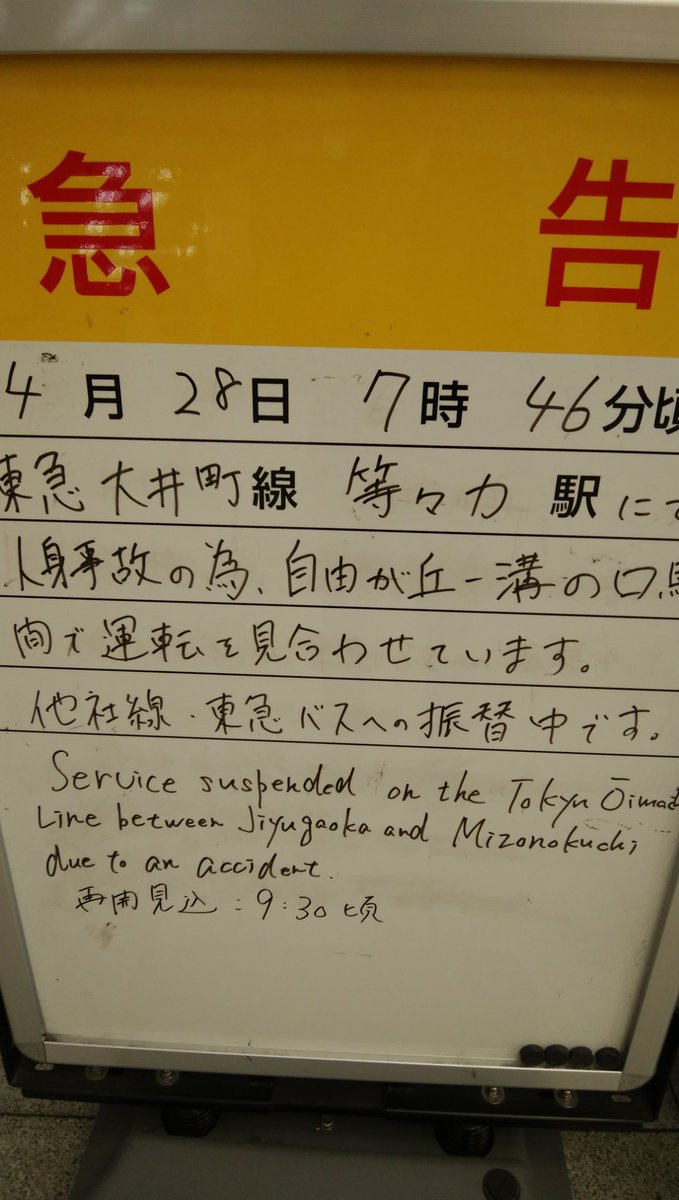 急告
4月28日 7時46分頃
東急大井町線 等々力駅にて
人身事故の為、自由が丘ー溝の口駅
間で運転を見合わせています。
他社線・東急バスへの振替中です。
Service suspended on the Tokyu Ōimac
Line between Jiyugaoka and Mizonokuchi
due to an accident.
再開見込:9:30頃